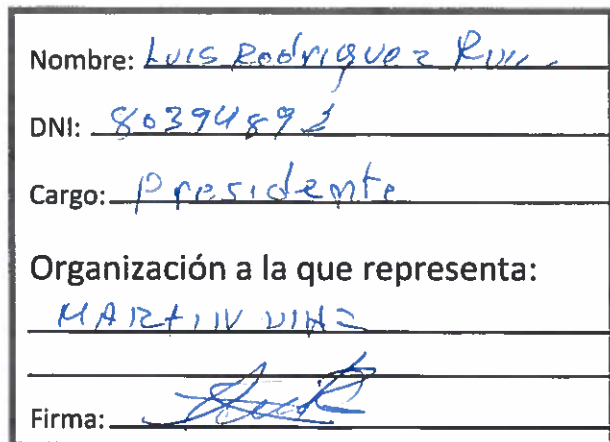 Nombre: Luis Rodriguez
DNI: 8039489
Cargo: Presidente
Organización a la que representa:
MARTIN
Firma: